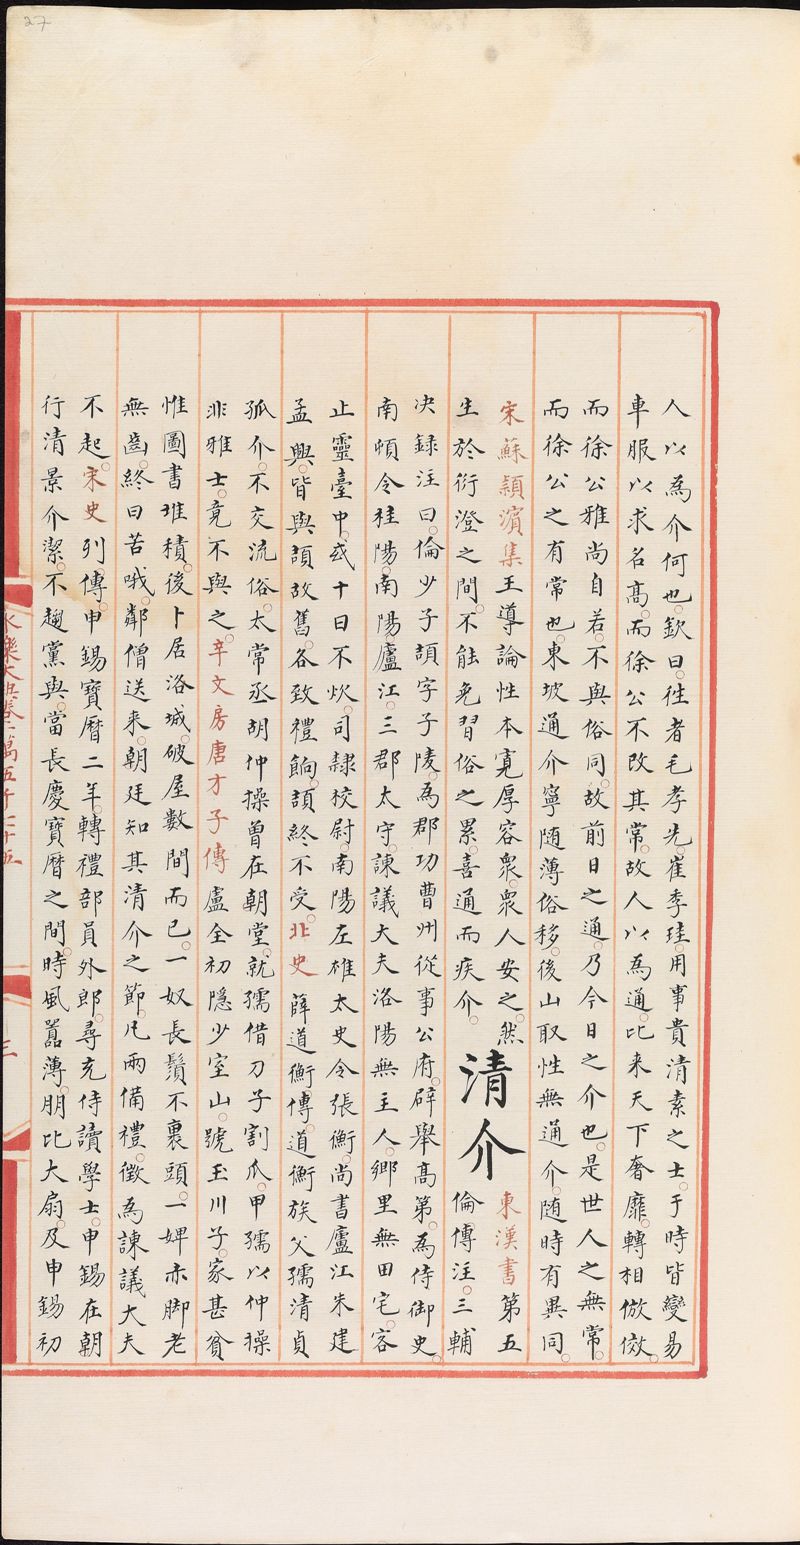 人以為介何也欽曰往者毛孝先崔季珪用事貴清素之士于時皆變易
車服以求名髙而徐公不改其常故人以為通比来天下奢靡轉相倣傚
而徐公雅尚自若不與俗同故前日之通乃今日之介也是世人之無常
而徐公之有常也東坡通介寧随薄俗移後山取性無通介随時有異同
宋蘇頴濵集王導論性本寛厚容衆衆人安之然
生於衍澄之間不能免習俗之累喜通而疾介
清介
東漢書第五
倫傳注三輔
决録注曰倫少子頡字子陵為郡功曹州從事公府辟舉髙第為侍御史
南頓令桂陽南陽廬江三郡太守諫議大夫洛陽無主人鄉里無田宅客
止靈臺中或十日不炊司隸校尉南陽左雄太史令張衡尚書廬江朱建
孟興皆與頡故舊各致禮餉頡終不受北史薛道衡傳道衡族父孺清貞
孤介不交流俗太常丞胡仲操曾在朝堂就孺借刀子割瓜甲孺以仲操
非雅士竟不與之辛文房唐才子傳盧仝初隠少室山號玉川子家甚貧
惟圖書堆積後卜居洛城破屋數間而已一奴長鬚不裹頭一婢赤脚老
無齒終日苦哦鄰僧送米朝廷知其清介之節凡兩備禮徵為諫議大夫
不起宋史列傳申錫寶曆二年轉禮部員外郎尋充侍讀學士申錫在朝
行清景介潔不趨黨與當長慶寶曆之間時風嚚薄朋比大扇及申錫初
永樂大典卷一萬五千七十五
三
27